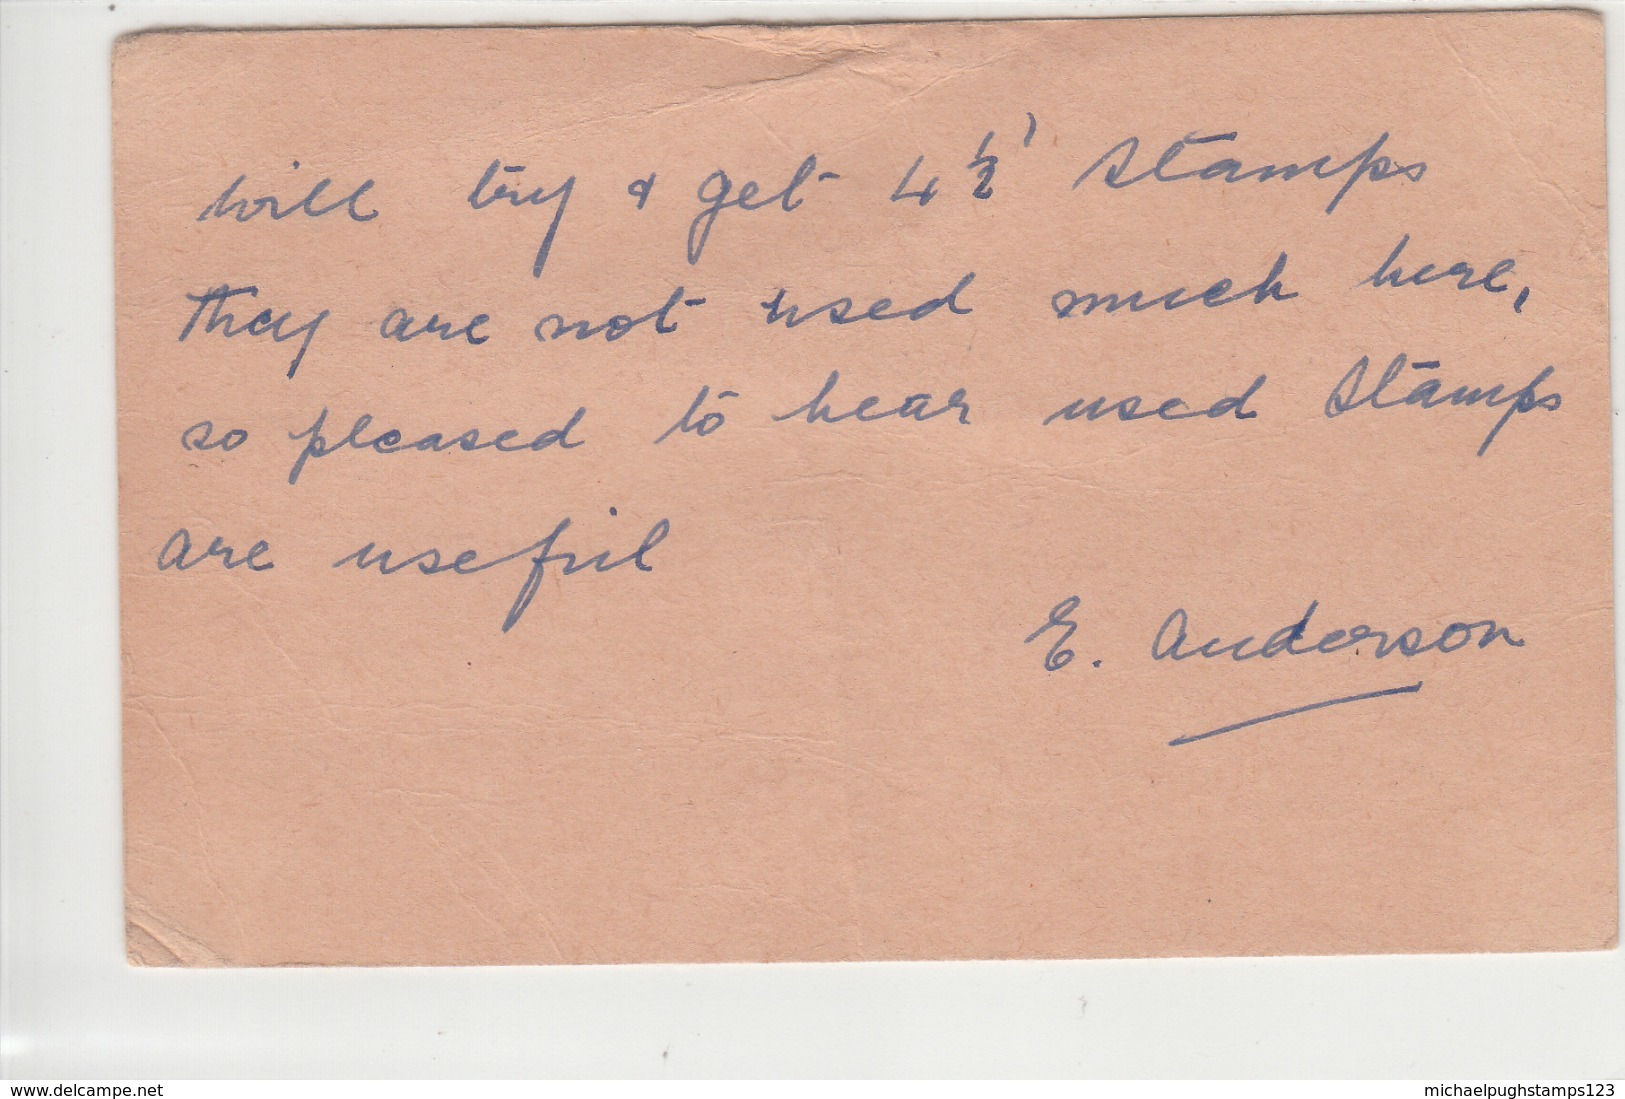 will try & get 4½' stamps
They are not used much here,
so pleased to hear used stamps
are useful
E. Anderson
www.delcampe.net
michaelpughstamps123